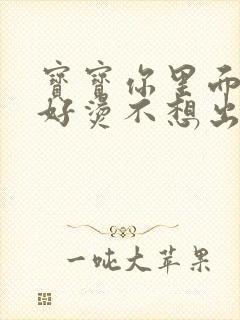 寶寶你里面
好燙不想出
一吨大苹果